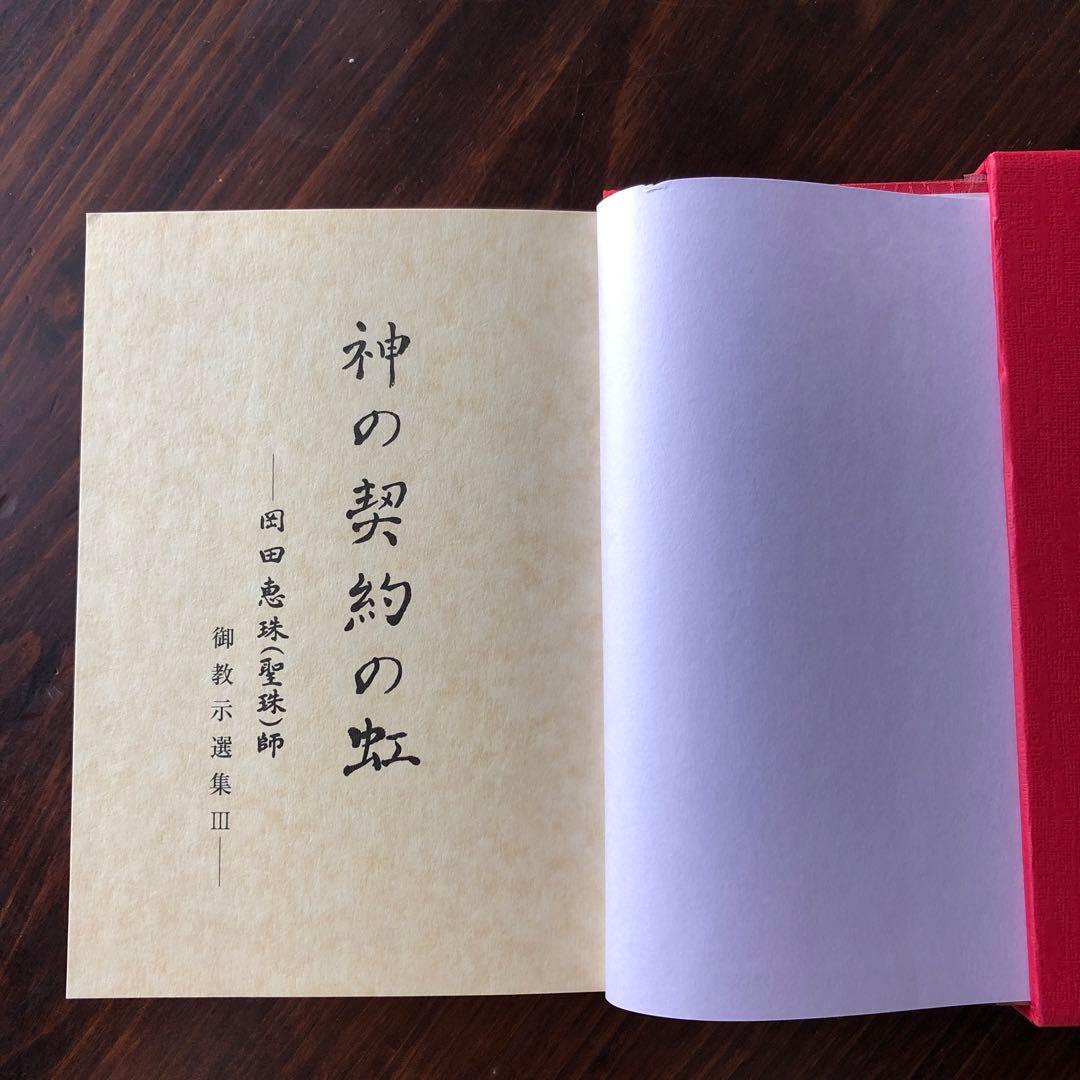 神の契約の虹
―岡田恵珠(聖珠)師
御教示選集Ⅲ―